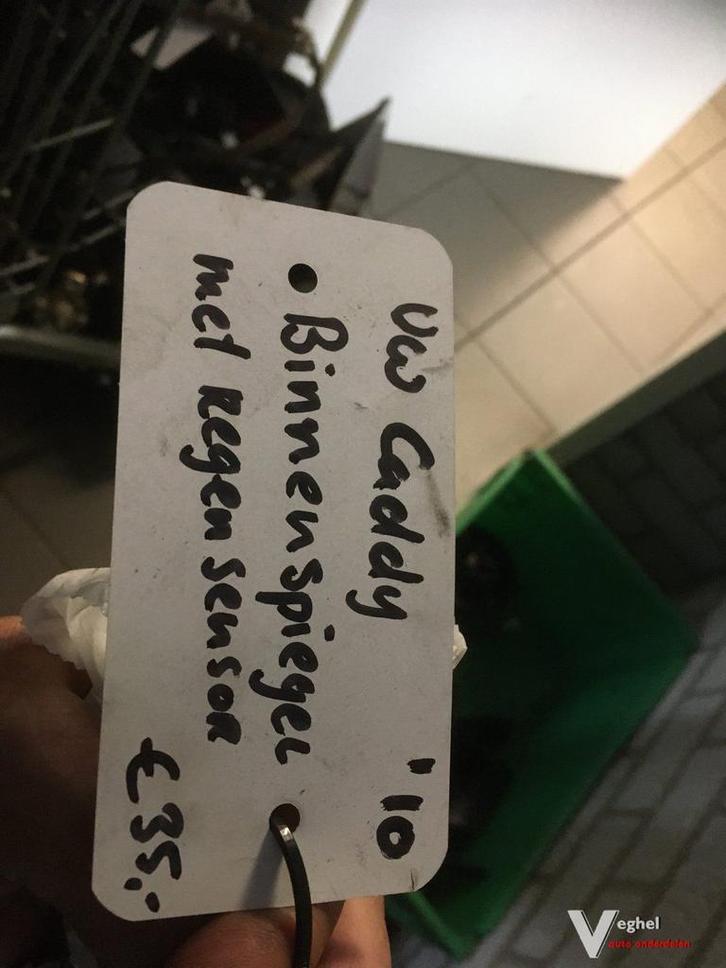 VW Caddy "10
Binnenspiegel
met Regensensor
€35,-
Veghel
auto onderdelen